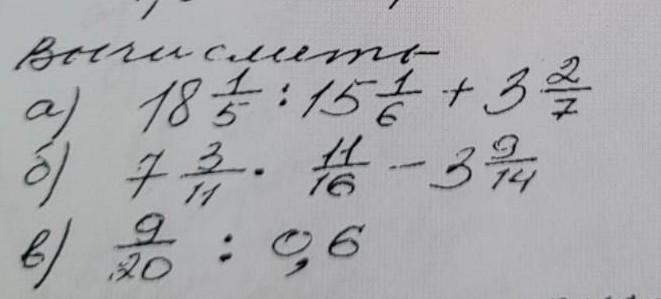 Вычислить
а) 18 1/5 : 15 1/6 + 3 2/7
б) 7 3/11 · 11/16 - 3 9/14
в) 9/20 : 0,6